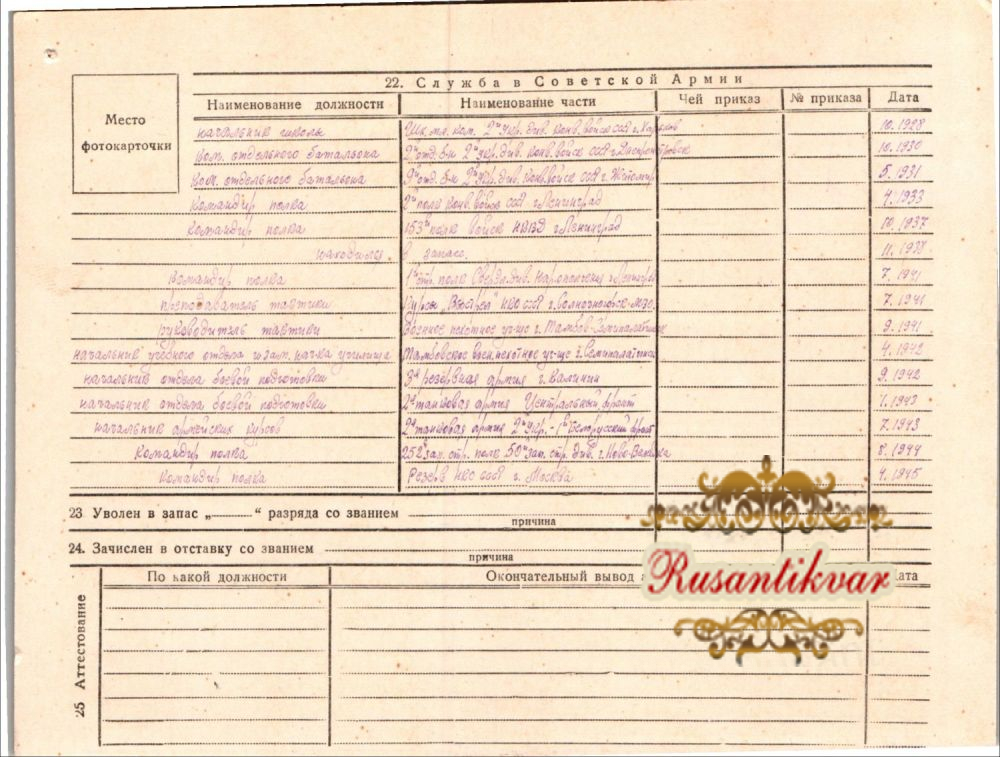 22. Служба в Советской Армии
Место фотокарточки
Наименование должности Наименование части Чей приказ № приказа Дата
начальник школы Шк. мл. ком. 2й Укр. див. конв. войск ссср г. Харьков 10.1928
ком. отдельного батальона 2й отд. б-н 2й Укр. див. конв. войск ссср г. Днепропетровск 10.1930
ком. отдельного батальона 9й отд. б-н 2й Укр. див. конв. войск ссср г. Житомир 5.1931
командир полка 2й полк конв. войск ссср г. Ленинград 4.1933
командир полка 153й полк войск НКВД г. Ленинград 10.1937
находился в запасе. 11.1938
командир полка 1й стр. полк Свердл. див. Нарополчения г. Ленинград 7.1941
преподаватель тактики Курсы „Выстрел" НКО ссср г. Солнечногорск 7.1941
руководитель тактики Военное пехотное уч-ще г. Тамбов-Семипалатинск 9.1941
начальник учебного отдела и зам. нач-ка училища Тамбовское воен. пехотное уч-ще г. Семипалатинск 4.1942
начальник отдела боевой подготовки 3я резервная армия г. Калинин 9.1942
начальник отдела боевой подготовки 2я танковая армия Центральный фронт 1.1943
начальник армейских курсов 2я танковая армия 2й Укр. - 1й Белорусский фронт 7.1943
командир полка 252й зап. стр. полк 50й зап. стр. див. г. 8.1944
командир полка Резерв НКО ссср г. Москва 4.1945
23 Уволен в запас „ “ разряда со званием
причина
24. Зачислен в отставку со званием
причина
25 Аттестование
По какой должности Окончательный вывод Дата
Rusantikvar